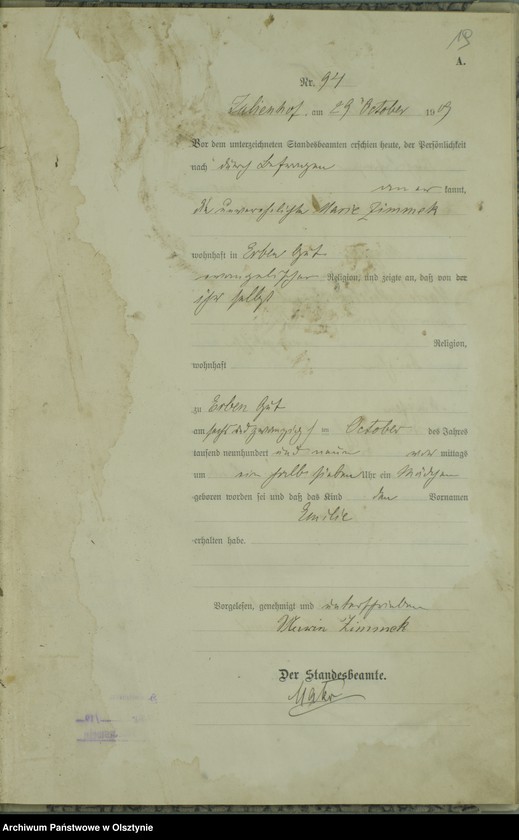 13
A.
Nr. 94
am 29 October 1909
Vor dem unterzeichneten Standesbeamten erschien heute, der Persönlichkeit
nach durch Befragen
an er kannt,
die unverehelichte Marie Zimmek
wohnhaft in Erben Gut
evangelischer Religion, und zeigte an, daß von der
ihr selbst
Religion,
wohnhaft
zu Erben Gut
am sechsundzwanzigsten October des Jahres
tausend neunhundert und neun vor mittags
um ein halb sieben Uhr ein Mädchen
geboren worden sei und daß das Kind den Vornamen
Emilie
erhalten habe.
Vorgelesen, genehmigt und unterschrieben
Marie Zimmek
Der Standesbeamte.
Archiwum Państwowe w Olsztynie